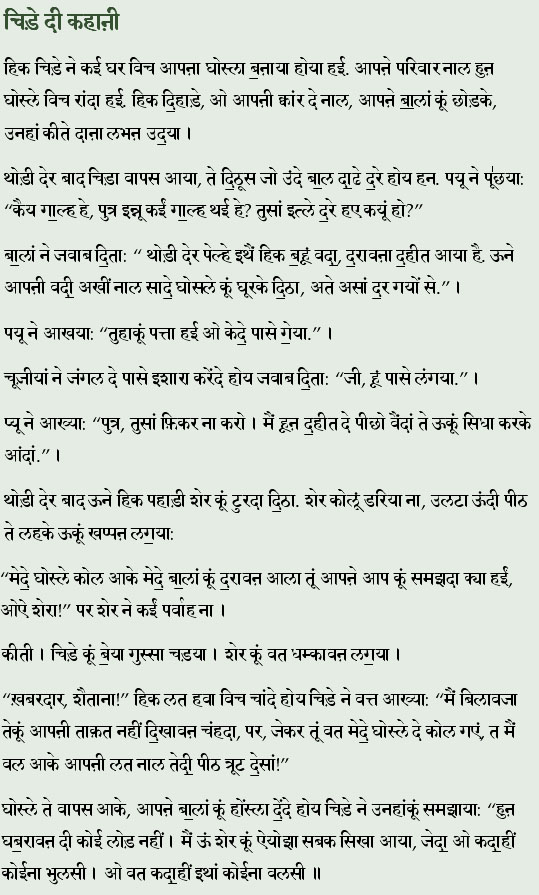 चिड़े दी कहाऩी
हिक चिड़े ने कई घर विच आपऩा घोस्ला ब॒ऩाया होया हई. आपऩे परिवार नाल हुऩ
घोस्ले विच रांदा हई. हिक दि॒हाड़े, ओ आपऩी क्वांर दे नाल, आपऩे बा॒लां कूं छोडके,
उनहां कीते दाऩा लभऩ उद॒या ।
थोड़ी देर बाद चिड़ा वापस आया, ते दि॒ठूस जो उंदे बा॒ल दा॒ढे द॒रे होय हन. पयू ने पूंछया:
“कैय गा॒ल्ह हे, पुत्र इन्नू कईं गा॒ल्ह थई हे? तुसां इत्ले द॒रे हए कयूं हो?”
बा॒लां ने जवाब दि॒ता: “ थोड़ी देर पेल्हे इथैं हिक ब॒हूं वदा॒, द॒रावऩा द॒हीत आया है. ऊने
आपऩी वदी॒ अखीं नाल सादे॒ घोसले कूं घूरके दि॒ठा, अते असां द॒र गयों से.” ।
पयू ने आखया: “तुहाकूं पत्ता हई ओ केदे॒ पासे गे॒या.” ।
चूज़ीयां ने जंगल दे पासे इशारा करेंदे होय जवाब दि॒ता: “जी, हूं पासे लंगया.” ।
प्यू ने आख्या: “पुत्र, तुसां फ़िकर ना करो । मैं हूऩ द॒हीत दे पीछो वैंदां ते ऊकूं सिधा करके
आंदां.” ।
थोड़ी देर बाद ऊने हिक पहाड़ी शेर कूं टुरदा दि॒ठा. शेर कोलूं डरिया ना, उलटा ऊंदी पीठ
ते लहके ऊकूं खप्पऩ लग॒या:
“मेदे॒ घोस्ले कोल आके मेदे॒ बा॒लां कूं द॒रावऩ आला तूं आपऩे आप कूं समझदा क्या हईं,
ओऐ शेरा!” पर शेर ने कईं पर्वाह ना ।
कीती । चिड़े कूं बे॒या गुस्सा चड़या । शेर कूं वत धम्कावऩ लग॒या ।
“ख़बरदार, शैताना!” हिक लत हवा विच चांदे होय चिड़े ने वत्त आख्या: “मैं बिलावजा
तेकूं आपऩी ताक़त नहीं दि॒खावऩ चंहदा, पर, जेकर तूं वत मेदे॒ घोस्ले दे कोल गएं, त मैं
वल आके आपऩी लत नाल तेदी॒ पीठ त्रूट दे॒सां!”
घोस्ले ते वापस आके, आपऩे बा॒लां कूं होंस्ला दें॒दे होय चिड़े ने उनहांकूं समझाया: “हुऩ
घब॒रावऩ दी कोई लोड नहीं । मैं ऊं शेर कूं ऐयोझा सबक सिखा आया, जेदा॒ ओ कदा॒हीं
कोईना भुलसी । ओ वत कदा॒हीं इथां कोईना वलसी ॥